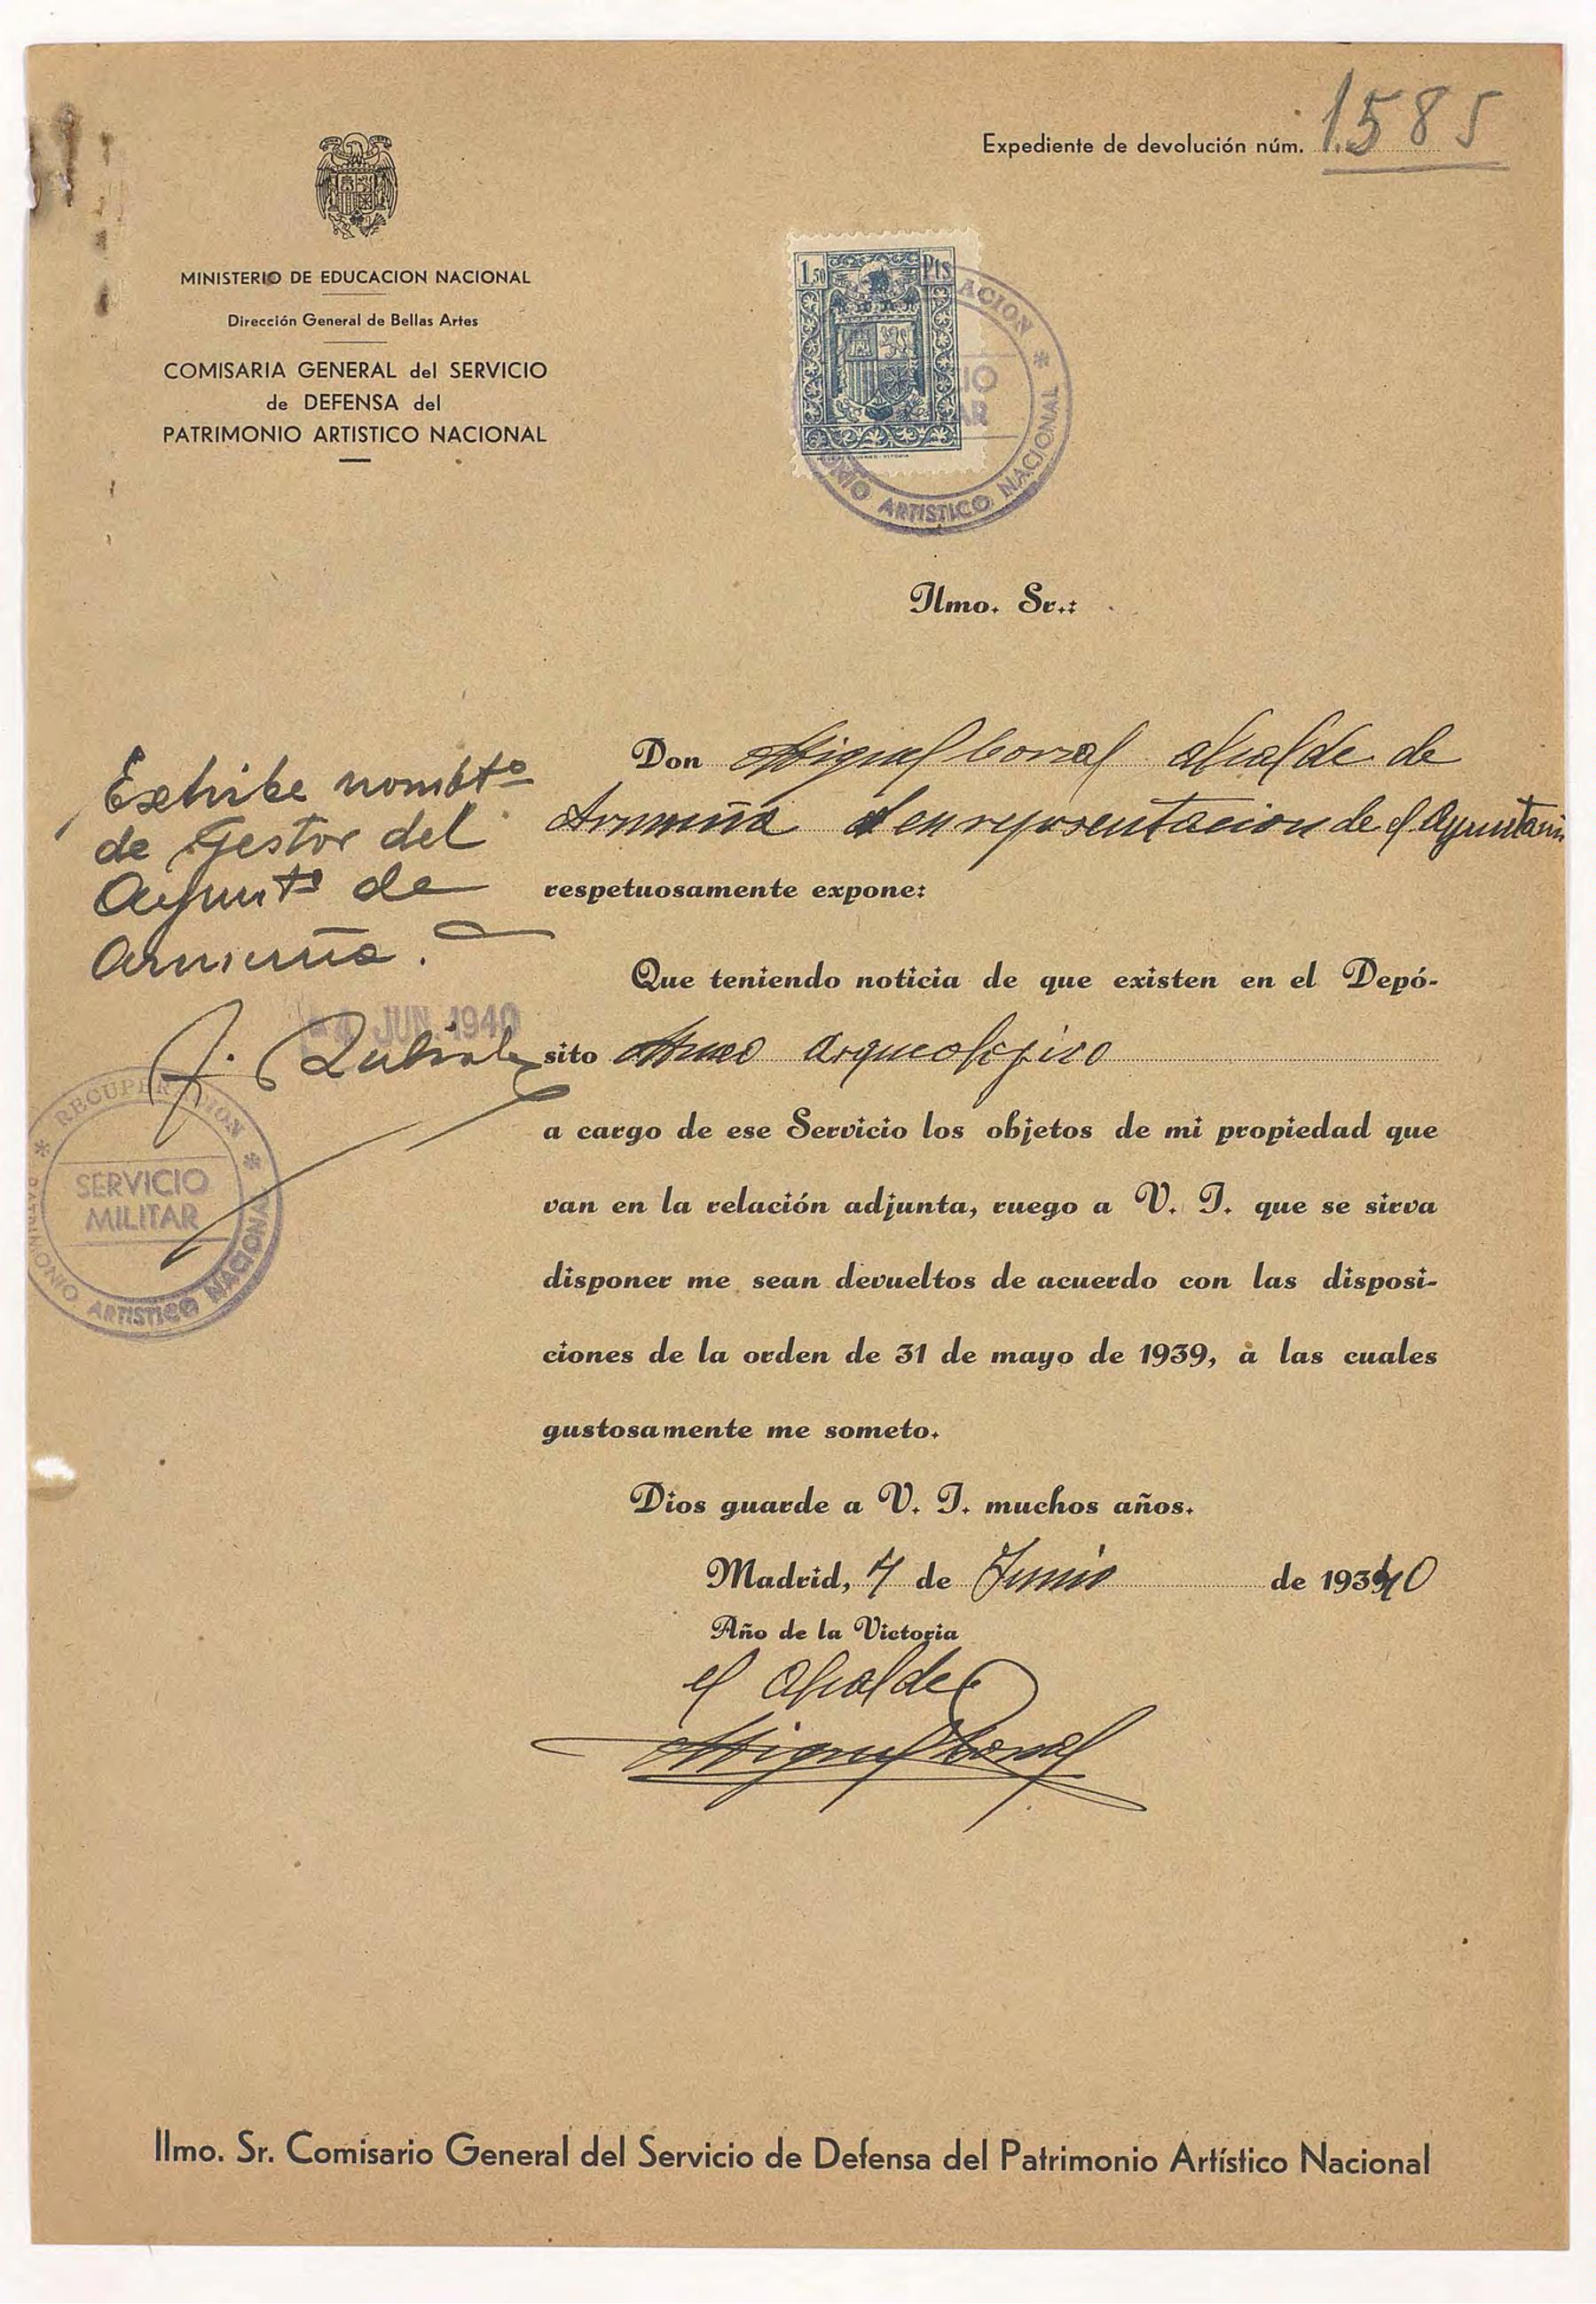 Expediente de devolución núm. 1.585
MINISTERIO DE EDUCACION NACIONAL
Dirección General de Bellas Artes
COMISARIA GENERAL del SERVICIO
de DEFENSA del
PATRIMONIO ARTISTICO NACIONAL
1,50 Pts
ACION * NACIONAL ARTISTICO
Ilmo. Sr.:
Don Miguel Corral alcalde de
Armuña en representacion de el Ayuntami
respetuosamente expone:
Exhibe nombtº
de Gestor del
Ayuntº de
Armuña.
4 JUN. 1940
* RECUPERACION *
SERVICIO
MILITAR
PATRIMONIO ARTISTICO NACIONAL
Que teniendo noticia de que existen en el Depó-
sito Museo Arqueologico
a cargo de ese Servicio los objetos de mi propiedad que
van en la relación adjunta, ruego a V. I. que se sirva
disponer me sean devueltos de acuerdo con las disposi-
ciones de la orden de 31 de mayo de 1939, a las cuales
gustosamente me someto.
Dios guarde a V. I. muchos años.
Madrid, 4 de Junio de 1940
Año de la Victoria
el Alcalde
Miguel Corral
Ilmo. Sr. Comisario General del Servicio de Defensa del Patrimonio Artístico Nacional